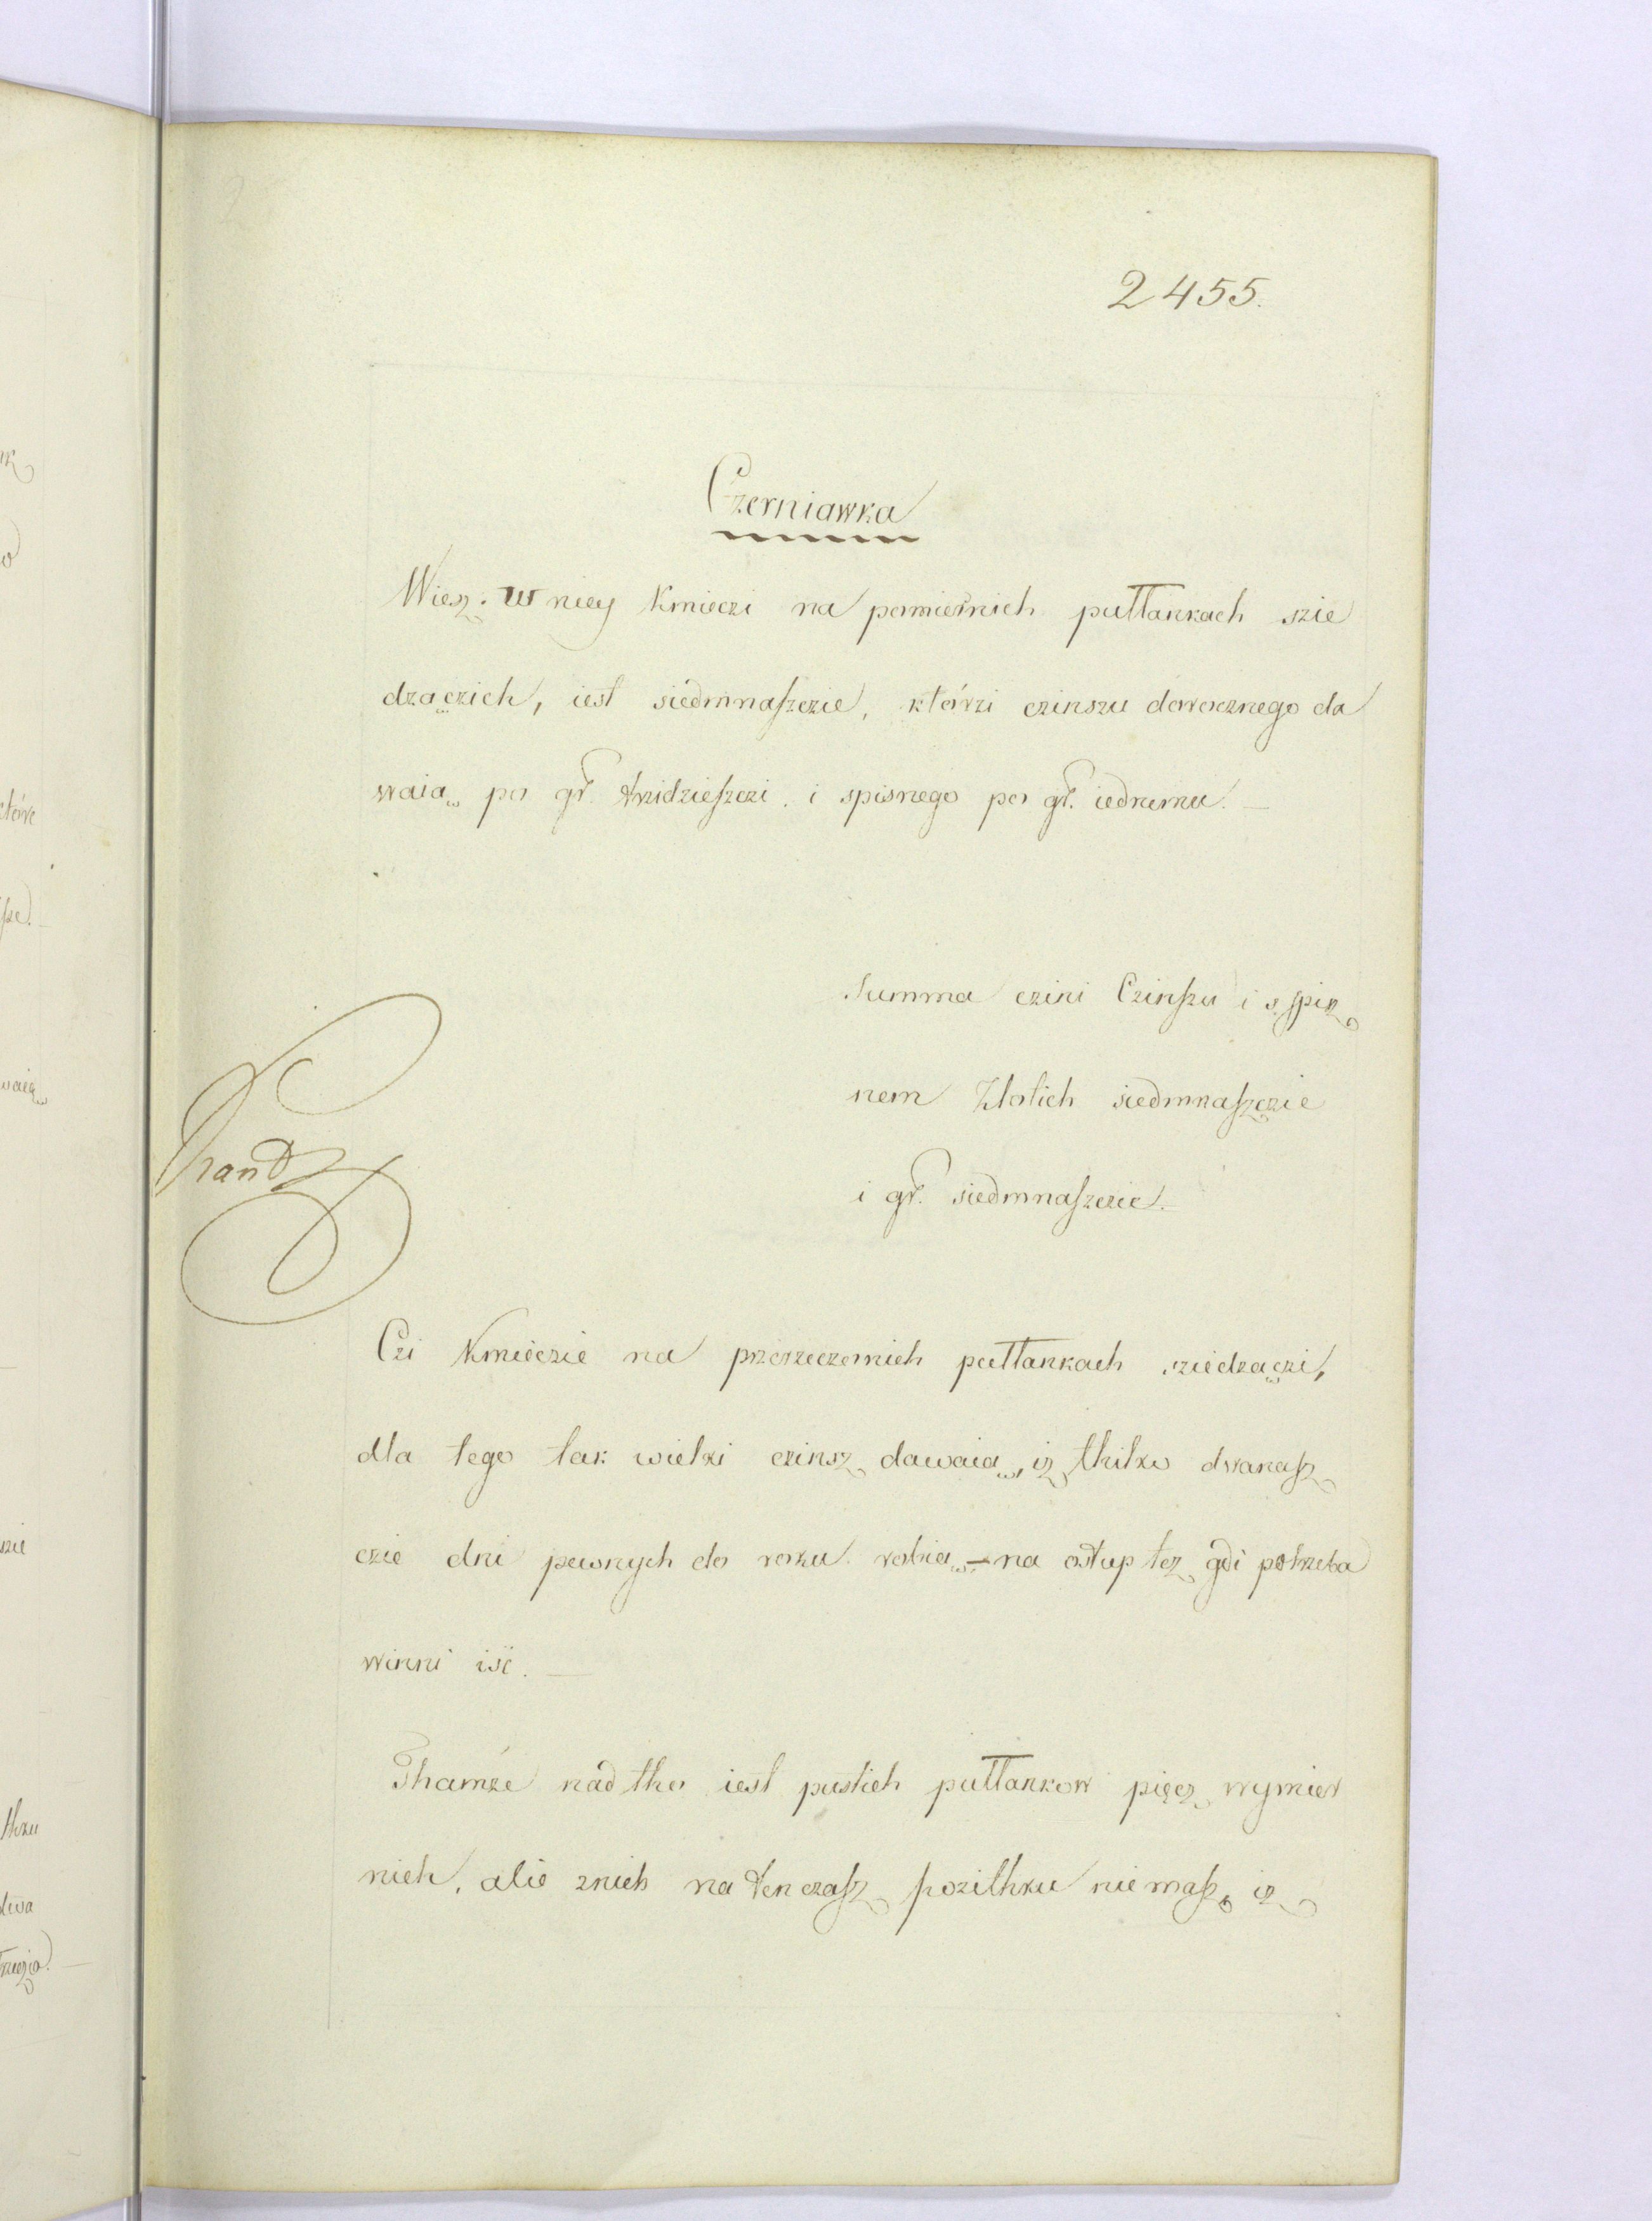 2455.
Czerniawka
Wiesz. w niey Kmieczi na pomiernich pułłankach szie
dzączich, iest siedmnaszczie, którzi czinszu dorocznego da
waią po gr. trzidzieszczi. i spisnego po gr. iednemu. —
Summa czini Czinszu i s spisz
nem Złotich siedmnaszczie
i gr. siedmnaszczie. —
Czi Kmieczie na przerzeczonich pułłankach sziedzączi,
dla tego tak wielki czinsz dawaią, iz thilko dwanasz
czie dni pewnych do roku robią, — na ostup tez gdi potrzeba
winni iść. —
Thamże nad tho iest pustich pułłankow pięcz wymier
nich, alie znich na ten czasz pozithku nie masz, iz
który
szie
waią
thku
dwa